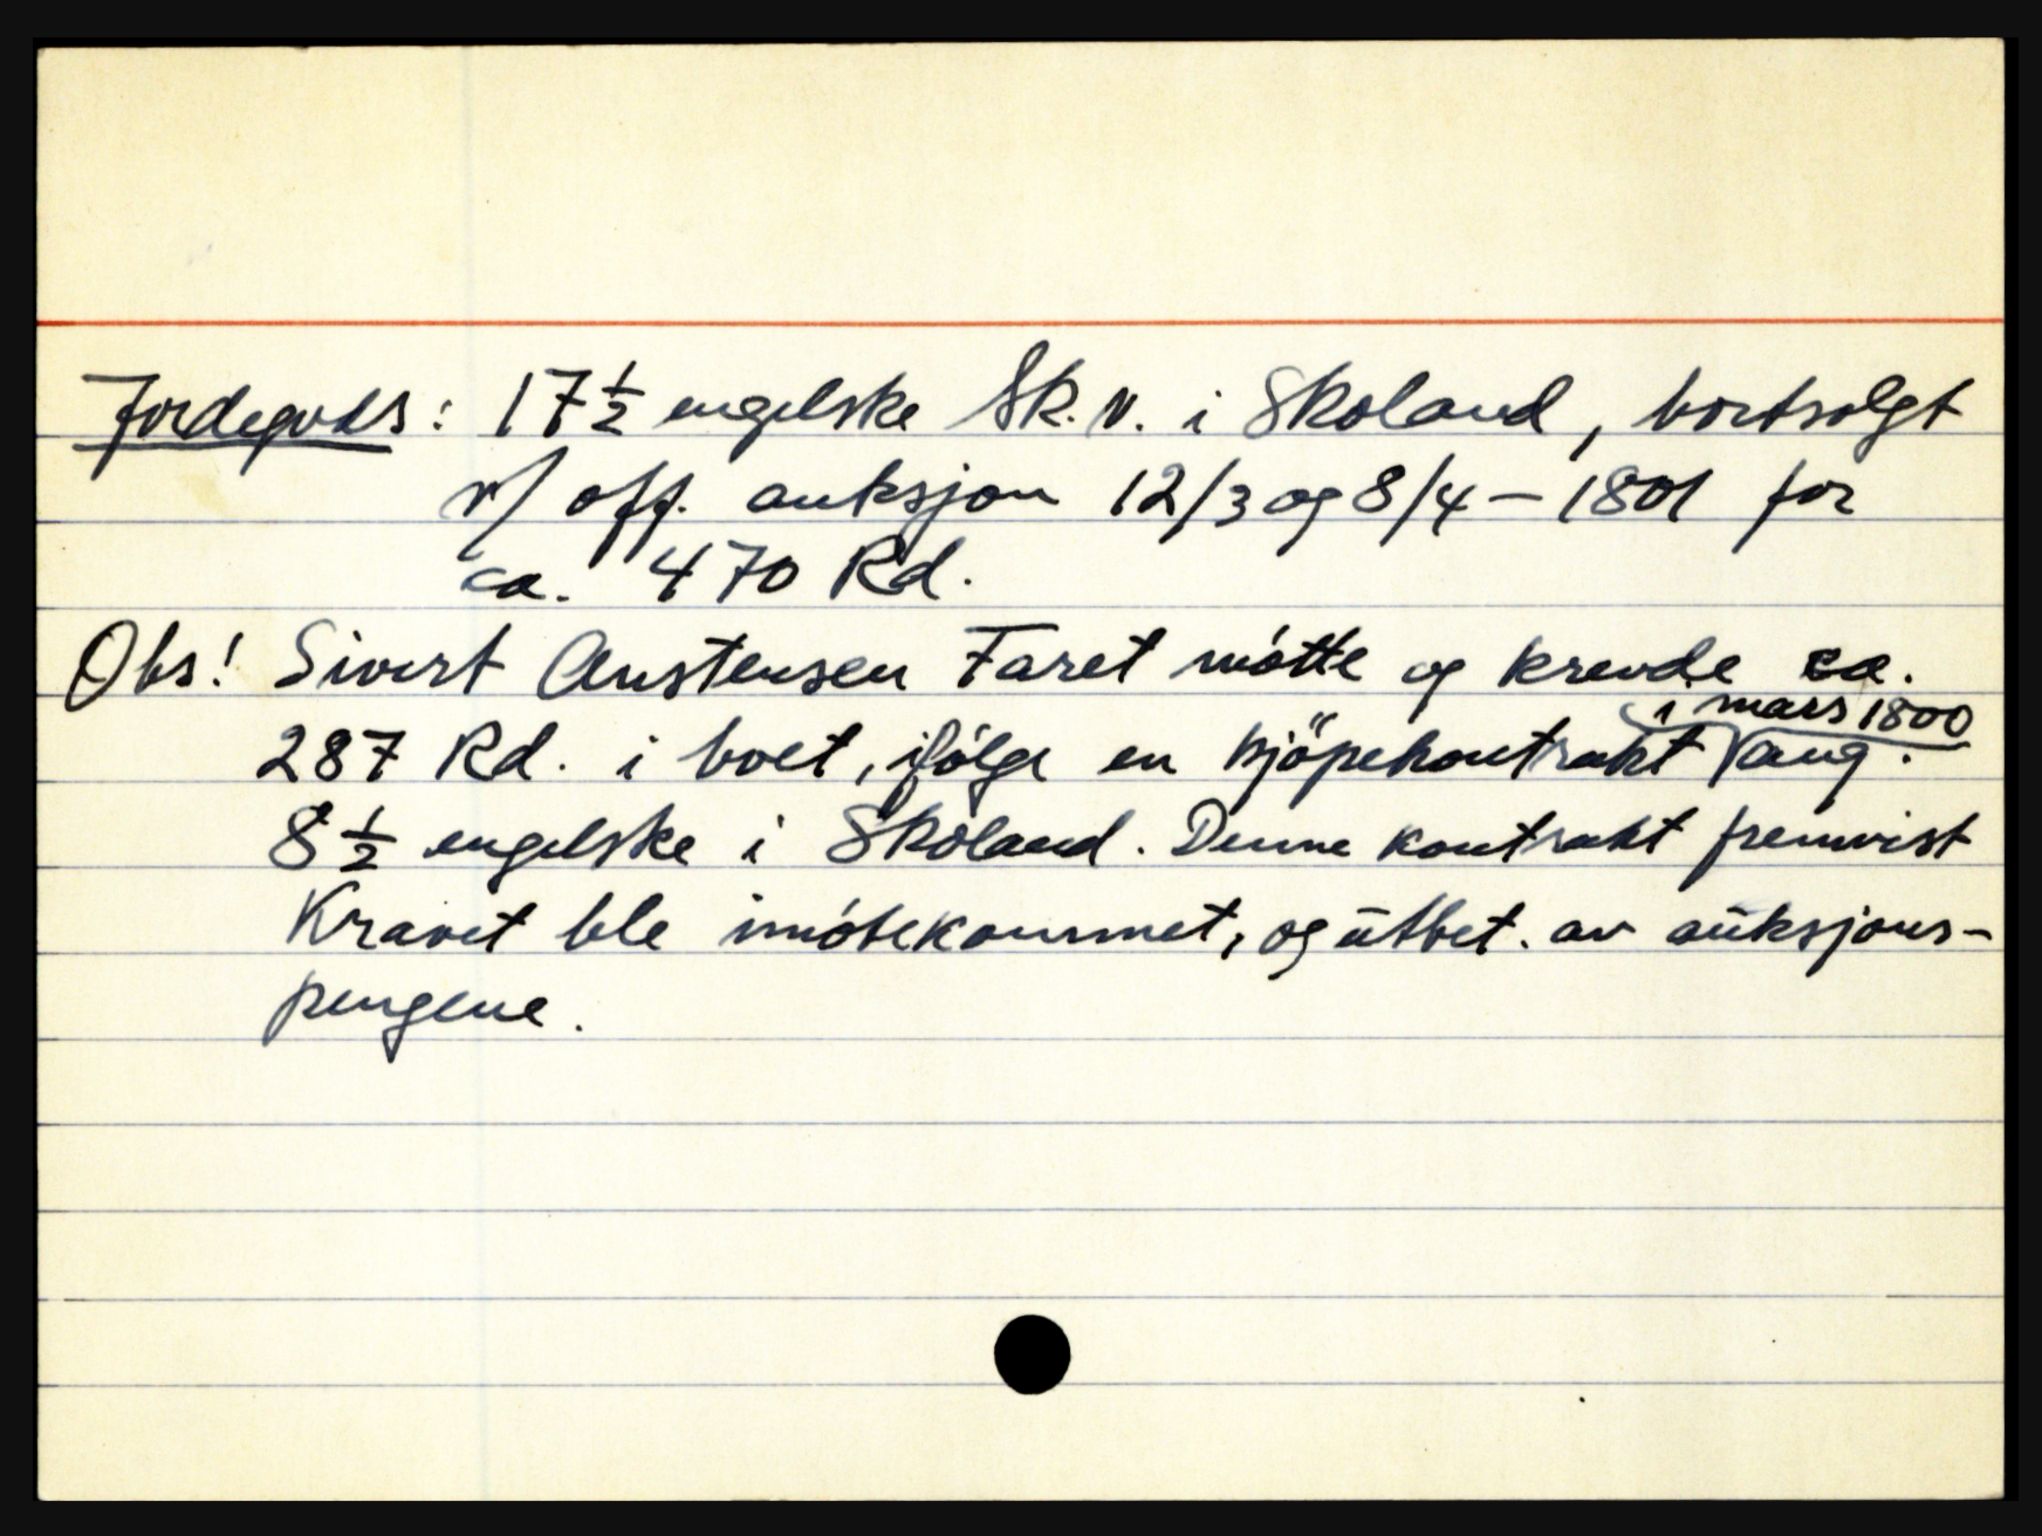 Jordegods: 17½ engelske Sk.v. i Skoland, bortsolgt
v/ off. auksjon 12/3 og 8/4 - 1801 for
ca. 470 Rd.
Obs! Sivert Austensen Faret mótte og krevde ca.
287 Rd. i boet, ifólge en kjöpekontrakt i mars 1800 ang.
8½ engelske i Skoland. Denne kontrakt fremvist
Kravet ble imótekommet, og utbet. av auksjons-
pengene.